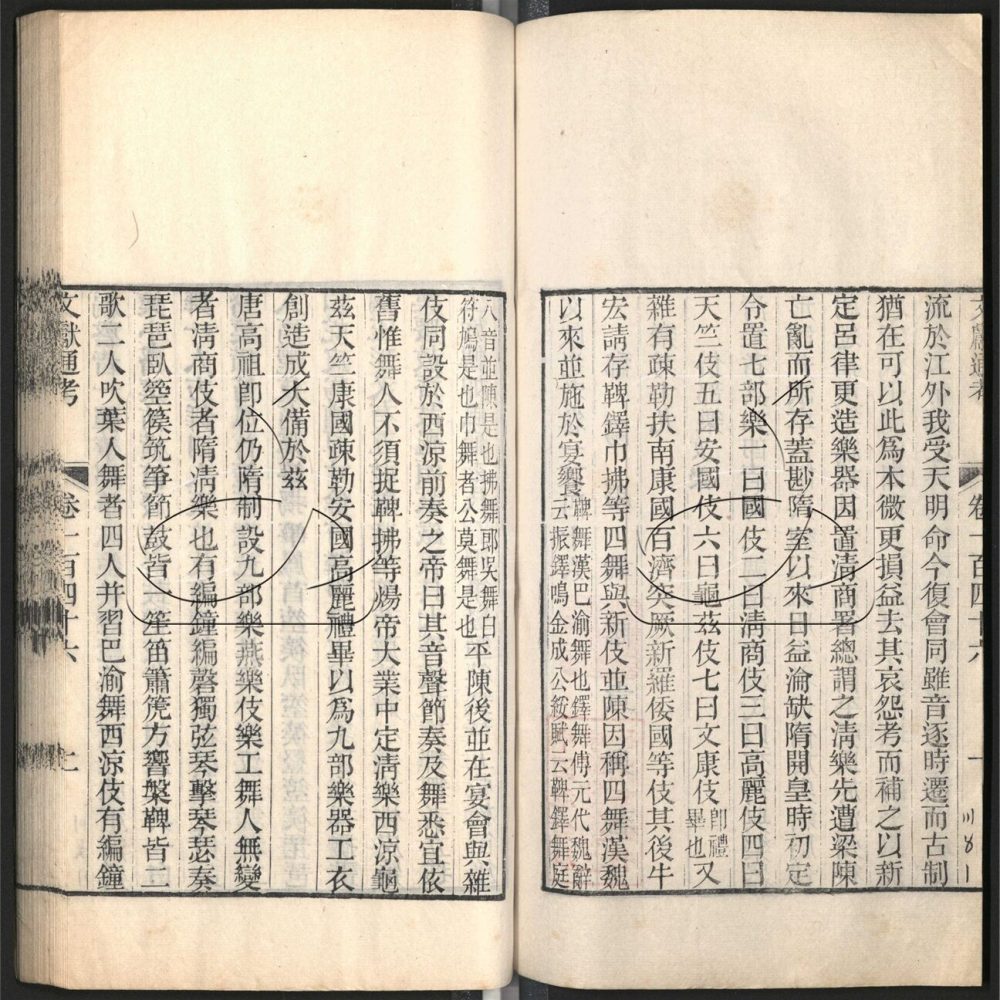 流於江外我受天明命今復會同雖音逐時遷而古制
猶在可以此爲本微更損益去其哀怨考而補之以新
定呂律更造樂器因置清商署總謂之清樂先遭梁陳
亡亂而所存蓋尠隋室以來日益淪缺隋開皇時初定
令置七部樂一曰國伎二曰清商伎三曰高麗伎四曰
天竺伎五曰安國伎六曰龜茲伎七曰文康伎卽禮畢也又
雜有疎勒扶南康國百濟突厥新羅倭國等伎其後牛
宏請存鞞鐸巾拂等四舞與新伎並陳因稱四舞漢魏
以來並施於宴饗鞞舞漢巴渝舞也鐸舞傅元代魏辭
云振鐸鳴金成公綏賦云鞞鐸舞庭
八音並陳是也拂舞郎吳舞白
符鳩是也巾舞者公莫舞是也平陳後並在宴會與雜
伎同設於西涼前奏之帝曰其音聲節奏及舞悉宜依
舊惟舞人不須捉鞞拂等煬帝大業中定淸樂西涼龜
茲天竺康國疎勒安國高麗禮畢以爲九部樂器工衣
創造成大備於茲
唐高祖卽位仍隋制設九部樂燕樂伎樂工舞人無變
者淸商伎者隋淸樂也有編鐘編磬獨弦琴擊琴瑟奏
琵琶臥箜篌筑箏節鼓皆一笙笛簫箎方響槃鞞皆二
歌二人吹葉人舞者四人幷習巴渝舞西涼伎有編鐘
文獻通考 卷一百四十六 七